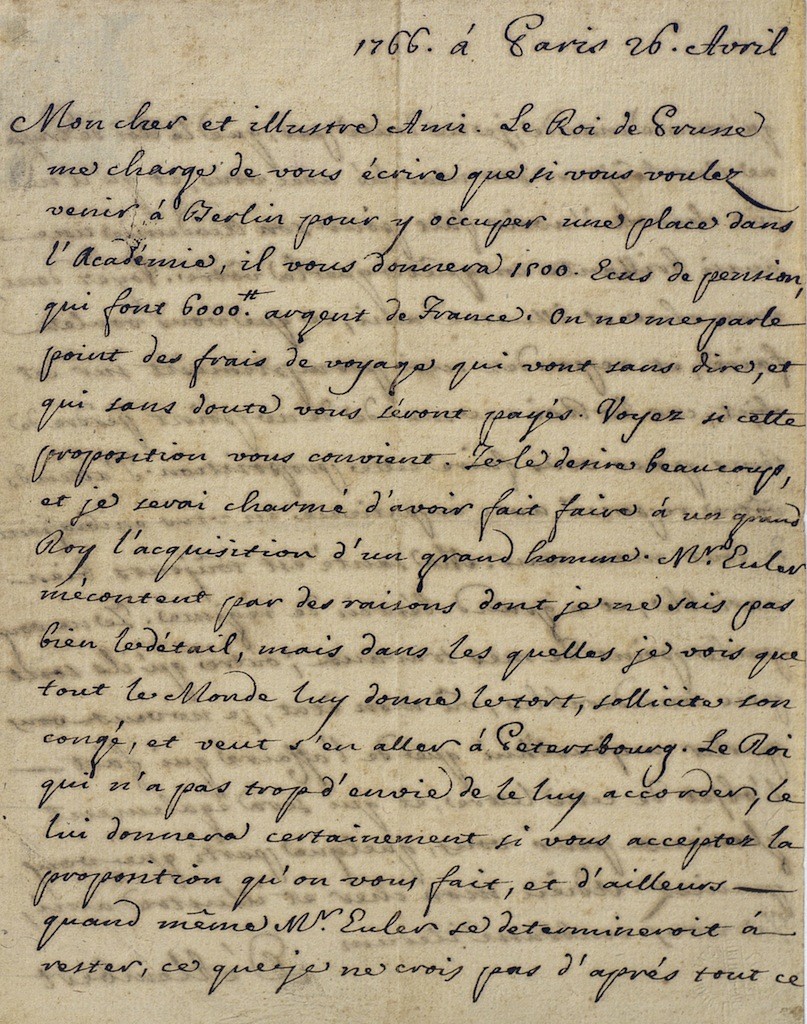 1766. á Paris 26. Avril
Mon cher et illustre Ami. Le Roi de Prusse
me charge de vous écrire que si vous voulez
venir á Berlin pour y occuper une place dans
l'Académie, il vous donnera 1500. Ecus de pension,
qui font 6000.tt argent de France. On ne me parle
point des frais de voyage qui vont sans dire, et
qui sans doute vous séront payés. Voyez si cette
proposition vous convient. Je le desire beaucoup,
et je serai charmé d'avoir fait faire á un grand
Roy l'acquisition d'un grand homme. Mr. Euler
mécontent par des raisons dont je ne sais pas
bien le détail, mais dans les quelles je vois que
tout le Monde luy donne le tort, sollicite son
congé, et veut s'en aller á Petersbourg. Le Roi
qui n'a pas trop d'envie de le luy accorder, le
lui donnera certainement si vous acceptez la
proposition qu'on vous fait, et d'ailleurs —
quand même Mr. Euler se determineroit á
rester, ce que je ne crois pas d'aprés tout ce